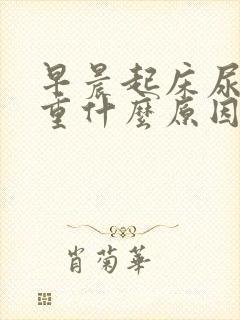 早晨起床尿
重什麼原因
肖菊華